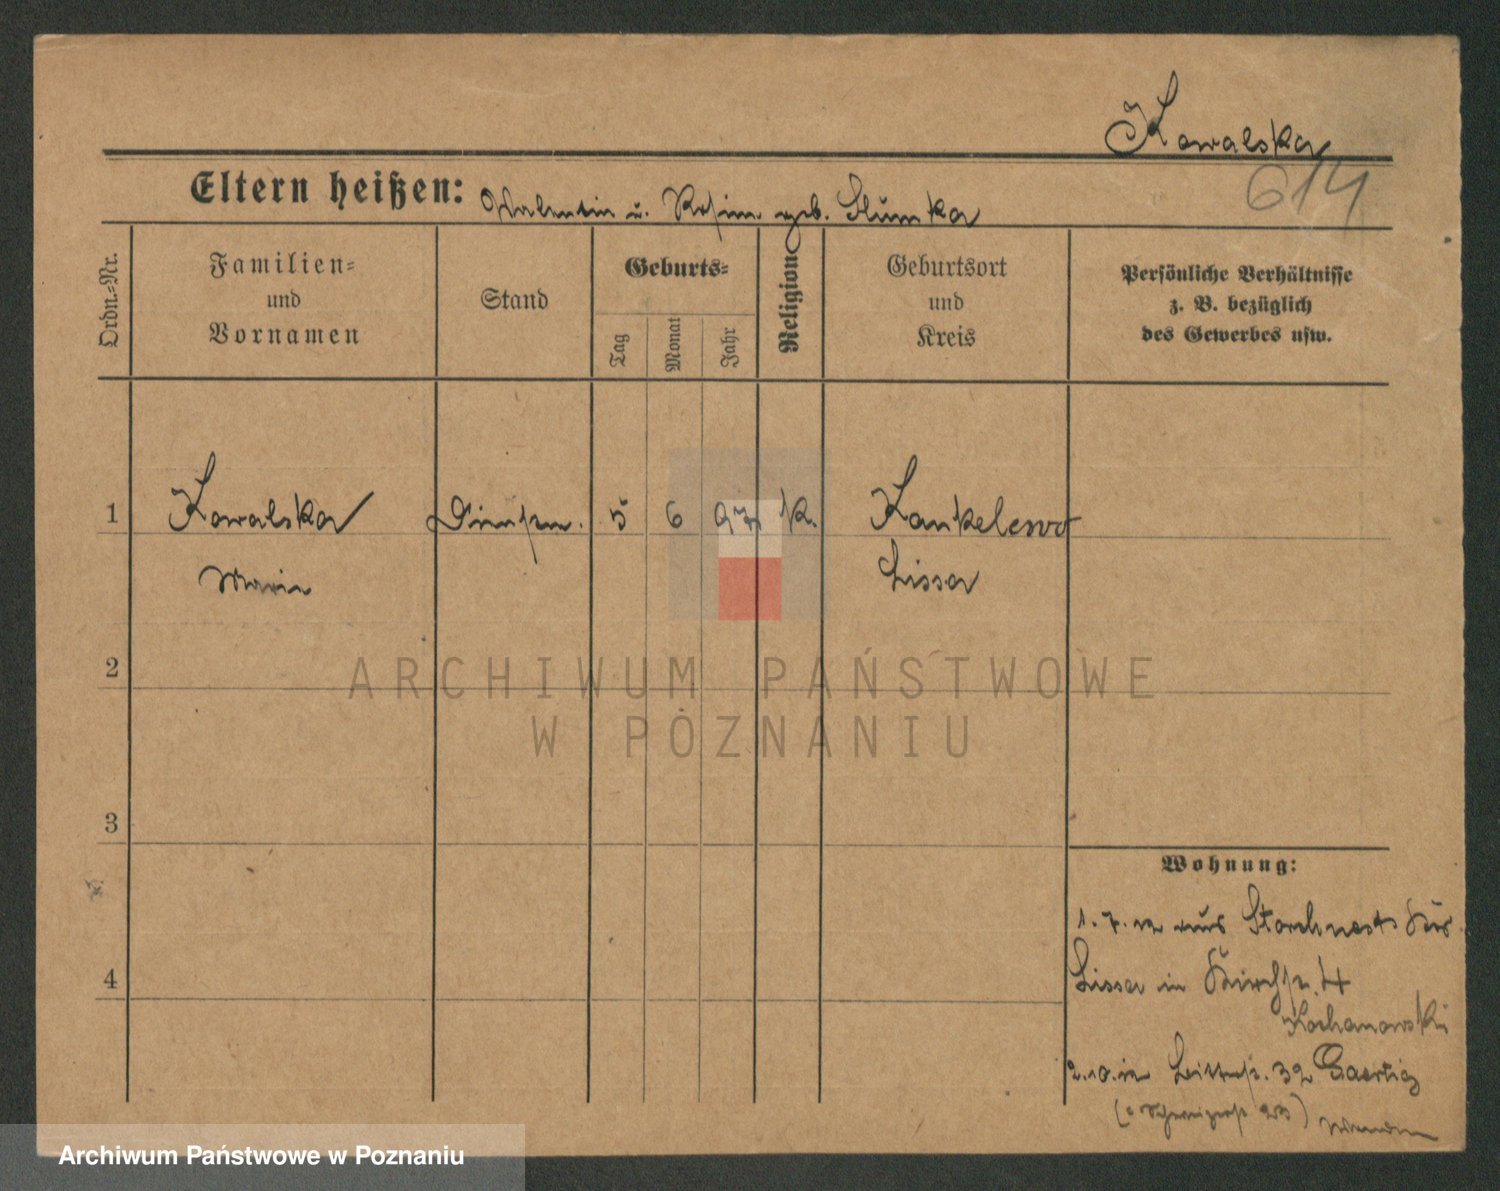 Kowalska
614
Eltern heißen: Valentin u. Rosina geb. Slumka
Ordn.-Nr.
Familien-
und
Vornamen
Stand
Geburts-
Tag
Monat
Jahr
Religion
Geburtsort
und
Kreis
Persönliche Verhältnisse
z. B. bezüglich
des Gewerbes usw.
1 Kowalska 5 6 97 K. Kankelewo
Maria Lissa
2
3
4
Wohnung:
1. 7. 12 aus Storchnest Krs.
Lissa in 4
Kochanowski
2. 10. 12 32 Gaertig
ARCHIWUM PAŃSTWOWE
W POZNANIU
Archiwum Państwowe w Poznaniu